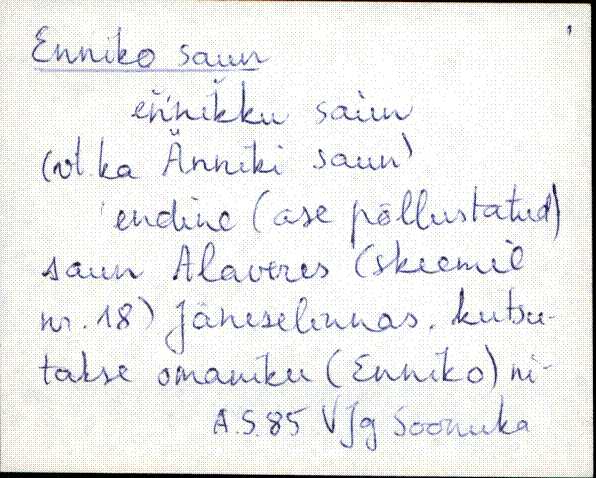 Enniko saun
eňnikku saun
(vt. ka Änniki saun)
endine (ase põllustatud)
saun Alaveres (skeemil
nr. 18) Jäneselinnas. kutsu-
takse omaniku (Enniko) ni-
A.S. 85 VJg Soonuka